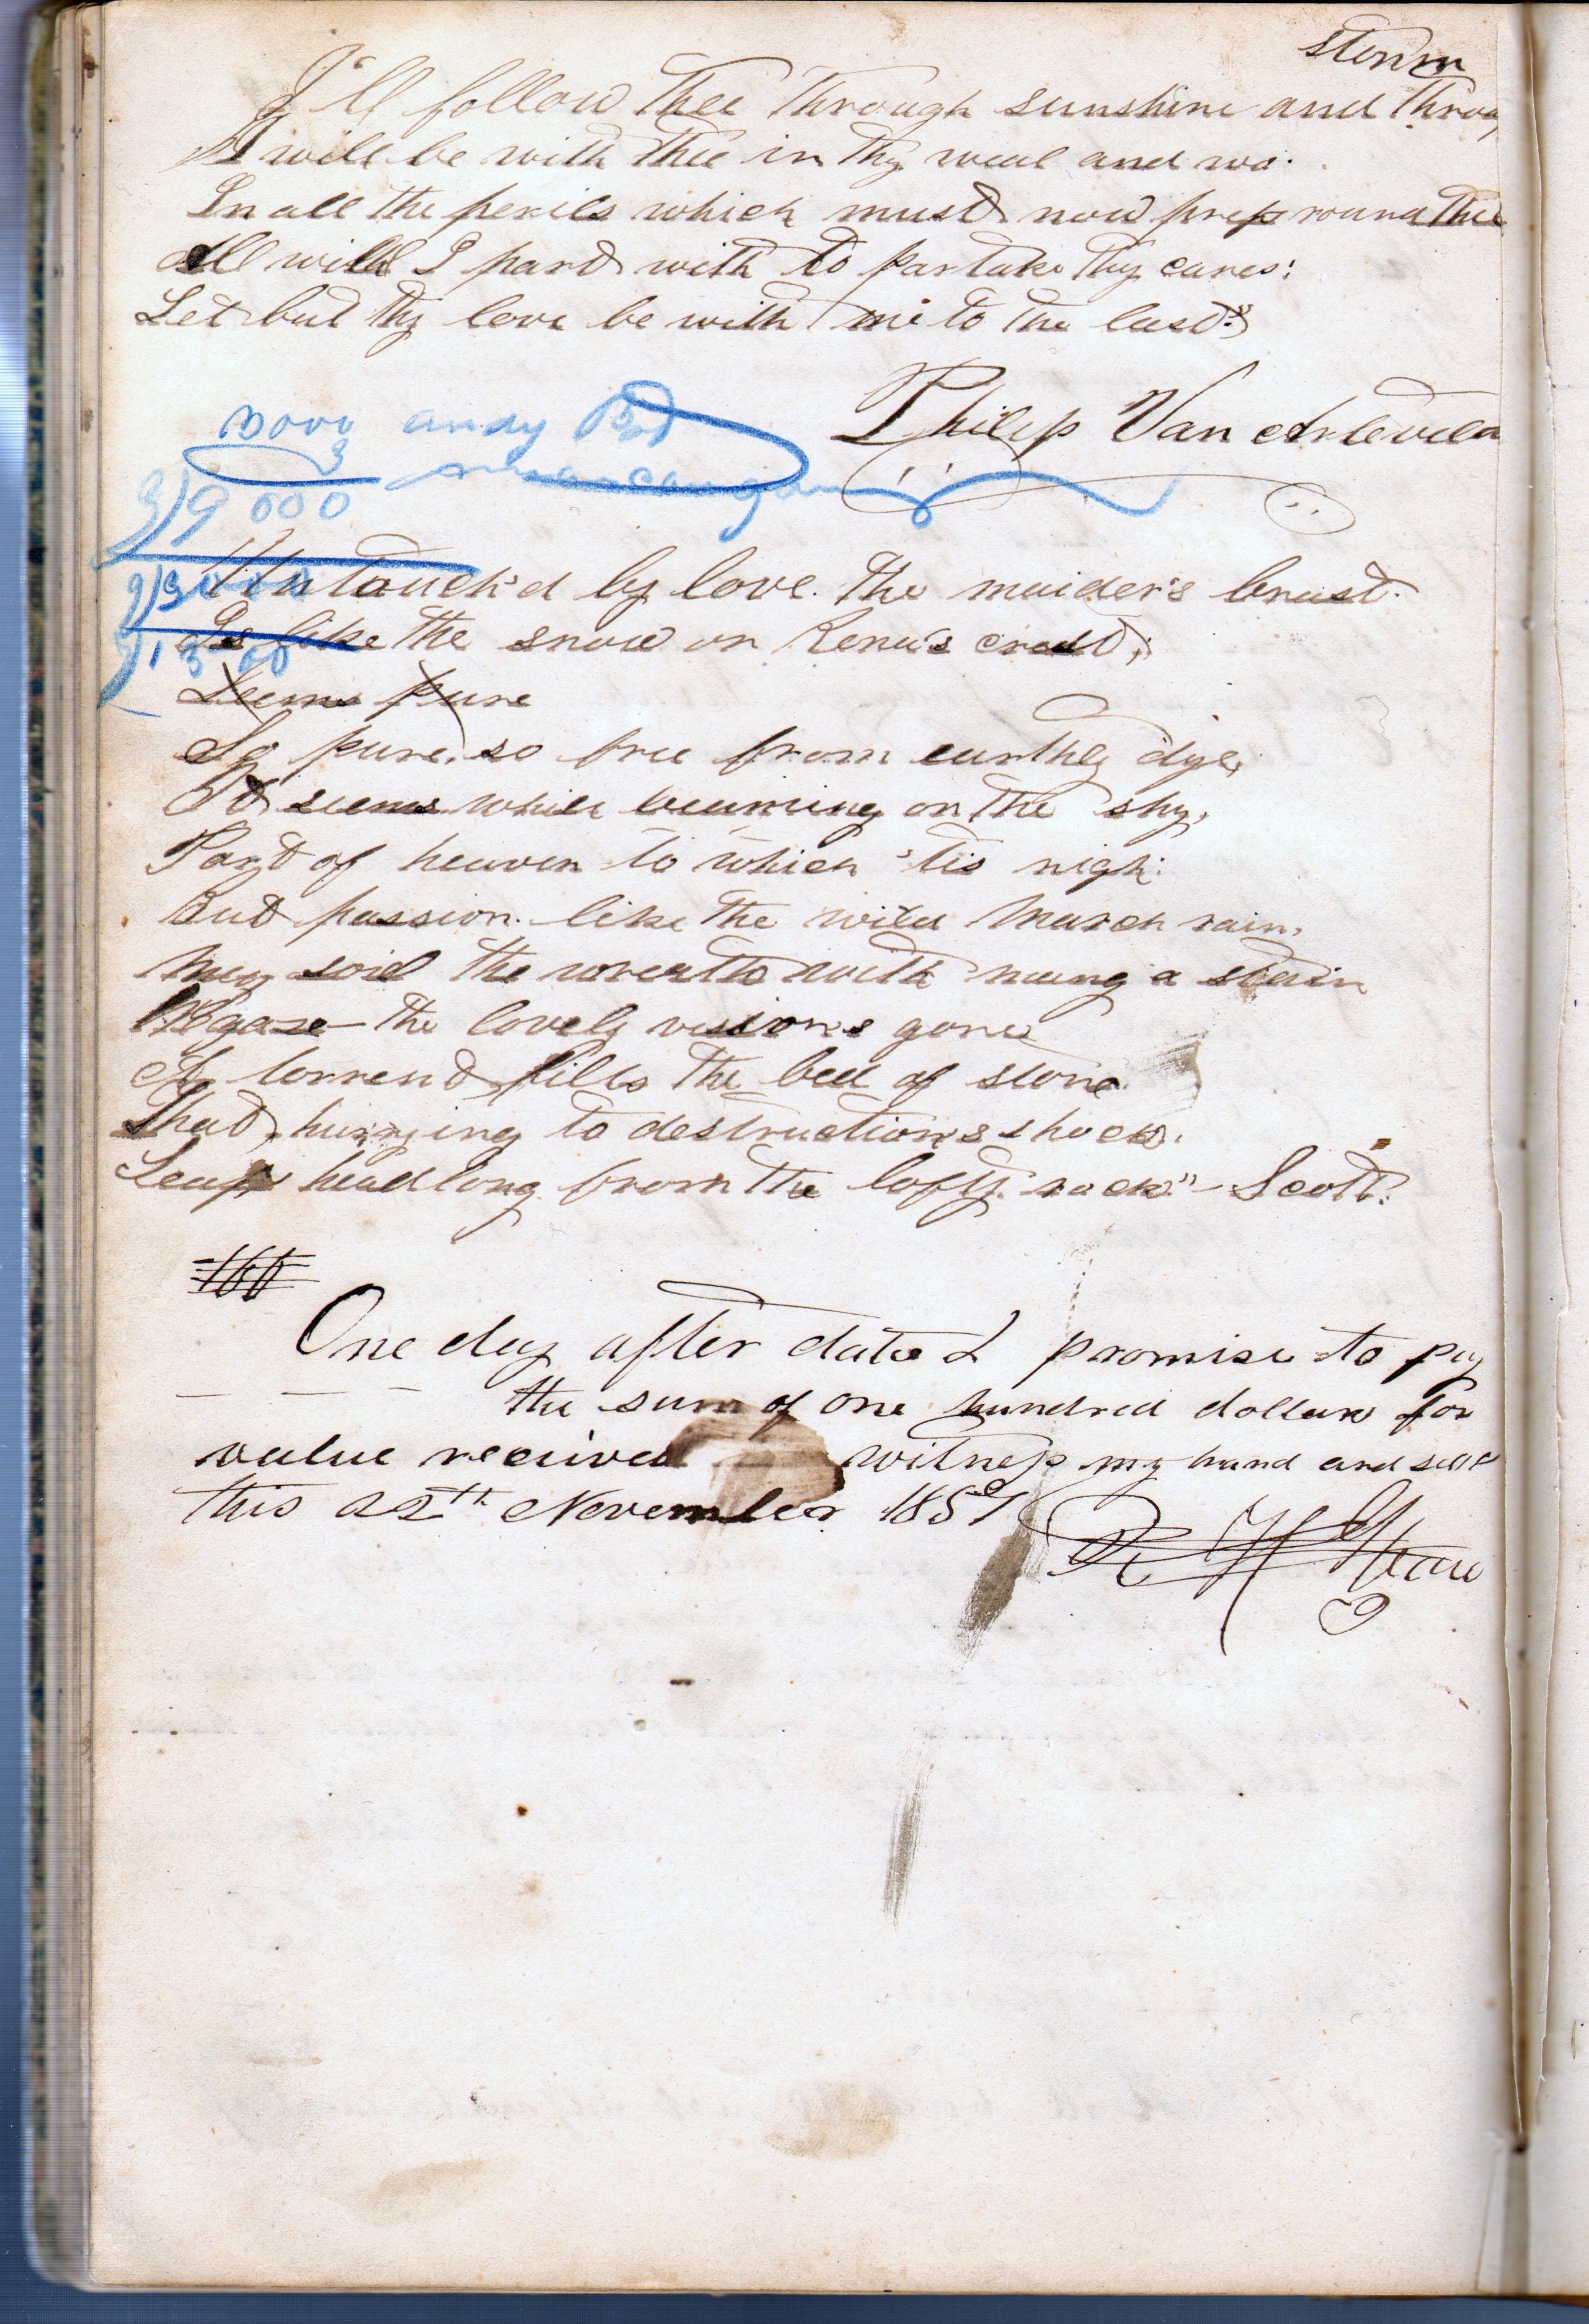 storm
I'll follow thee through sunshine and throug
I will be with thee in thy weal and wo.
In all the perils which must now press round thee
All will I part with to partake thy cares:
Let but thy love be with me to the last."
Philip Van Artevelda
3000 andy
3
3)9000
Untouch'd by love. The maiden's breast.
Is like the snow on Rena's crest;
Seems pure
So pure, so free from earthly dye,
It seems while beaming on the sky,
Part of heaven to which 'tis nigh:
But passion like the wild March rain,
May soil the wreath with many a stain
We gaze—the lovely visions gone
A torrent fills the bed of stone
That, hurrying to destructions shock.
Leaps headlong from the lofty rock."—Scott.
100
One day after date I promise to pay
— — — the sum of one hundred dollars for
value received witness my hand and seal
this 22th November 1857
R H